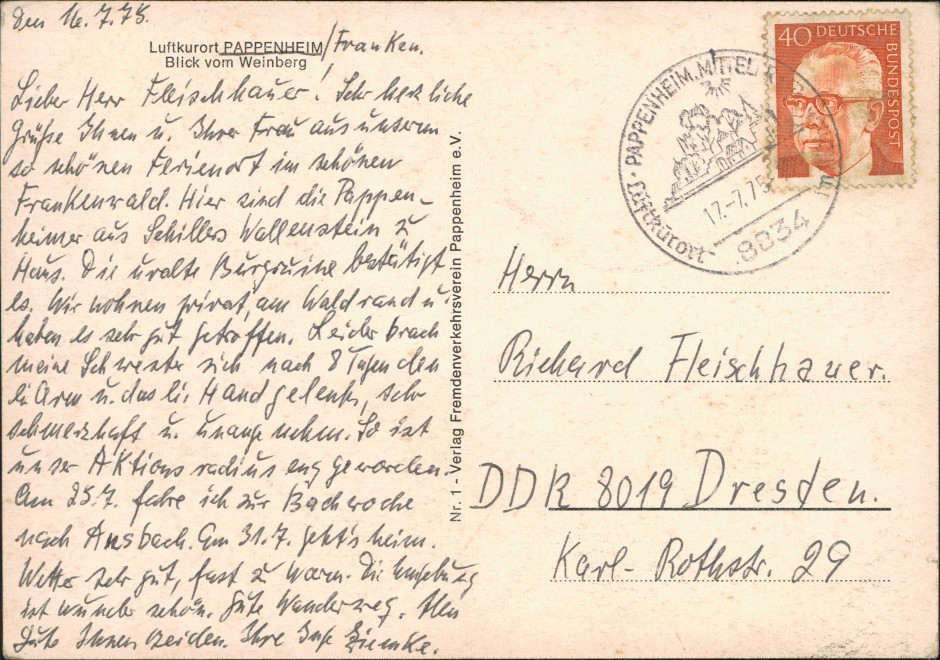 den 16.7.75.
Luftkurort PAPPENHEIM/Franken.
Blick vom Weinberg
Lieber Herr Fleischhauer! Sehr herzliche
Grüße Ihnen u. Ihrer Frau aus unserm
so schönen Ferienort im schönen
Frankenwald. Hier sind die Pappen-
heimer aus Schillers Wallenstein zu
Haus. Die uralte Burgruine bestätigt
es. Wir wohnen privat, am Waldrand u.
haben es sehr gut getroffen. Leider brach
meine Schwester sich nach 8 Tagen den
li Arm u. das li. Handgelenk, sehr
schmerzhaft u. unangenehm. So ist
unser Aktionsradius eng geworden.
Am 25.7. fahre ich zur Bachwoche
nach Ansbach. Am 31.7. geht's heim.
Wetter sehr gut, fast zu warm. Die Umgebung
ist wunderschön. Gute Wanderweg. Alles
Gute Ihnen beiden. Ihre Inge Ziemke.
Nr. 1 - Verlag Fremdenverkehrsverein Pappenheim e.V.
PAPPENHEIM, MITTEL
17.-7.75
Luftkurort
8834
40 DEUTSCHE
BUNDESPOST
Herrn
Richard Fleischhauer.
DDR 8019 Dresden.
Karl-Rothstr. 29